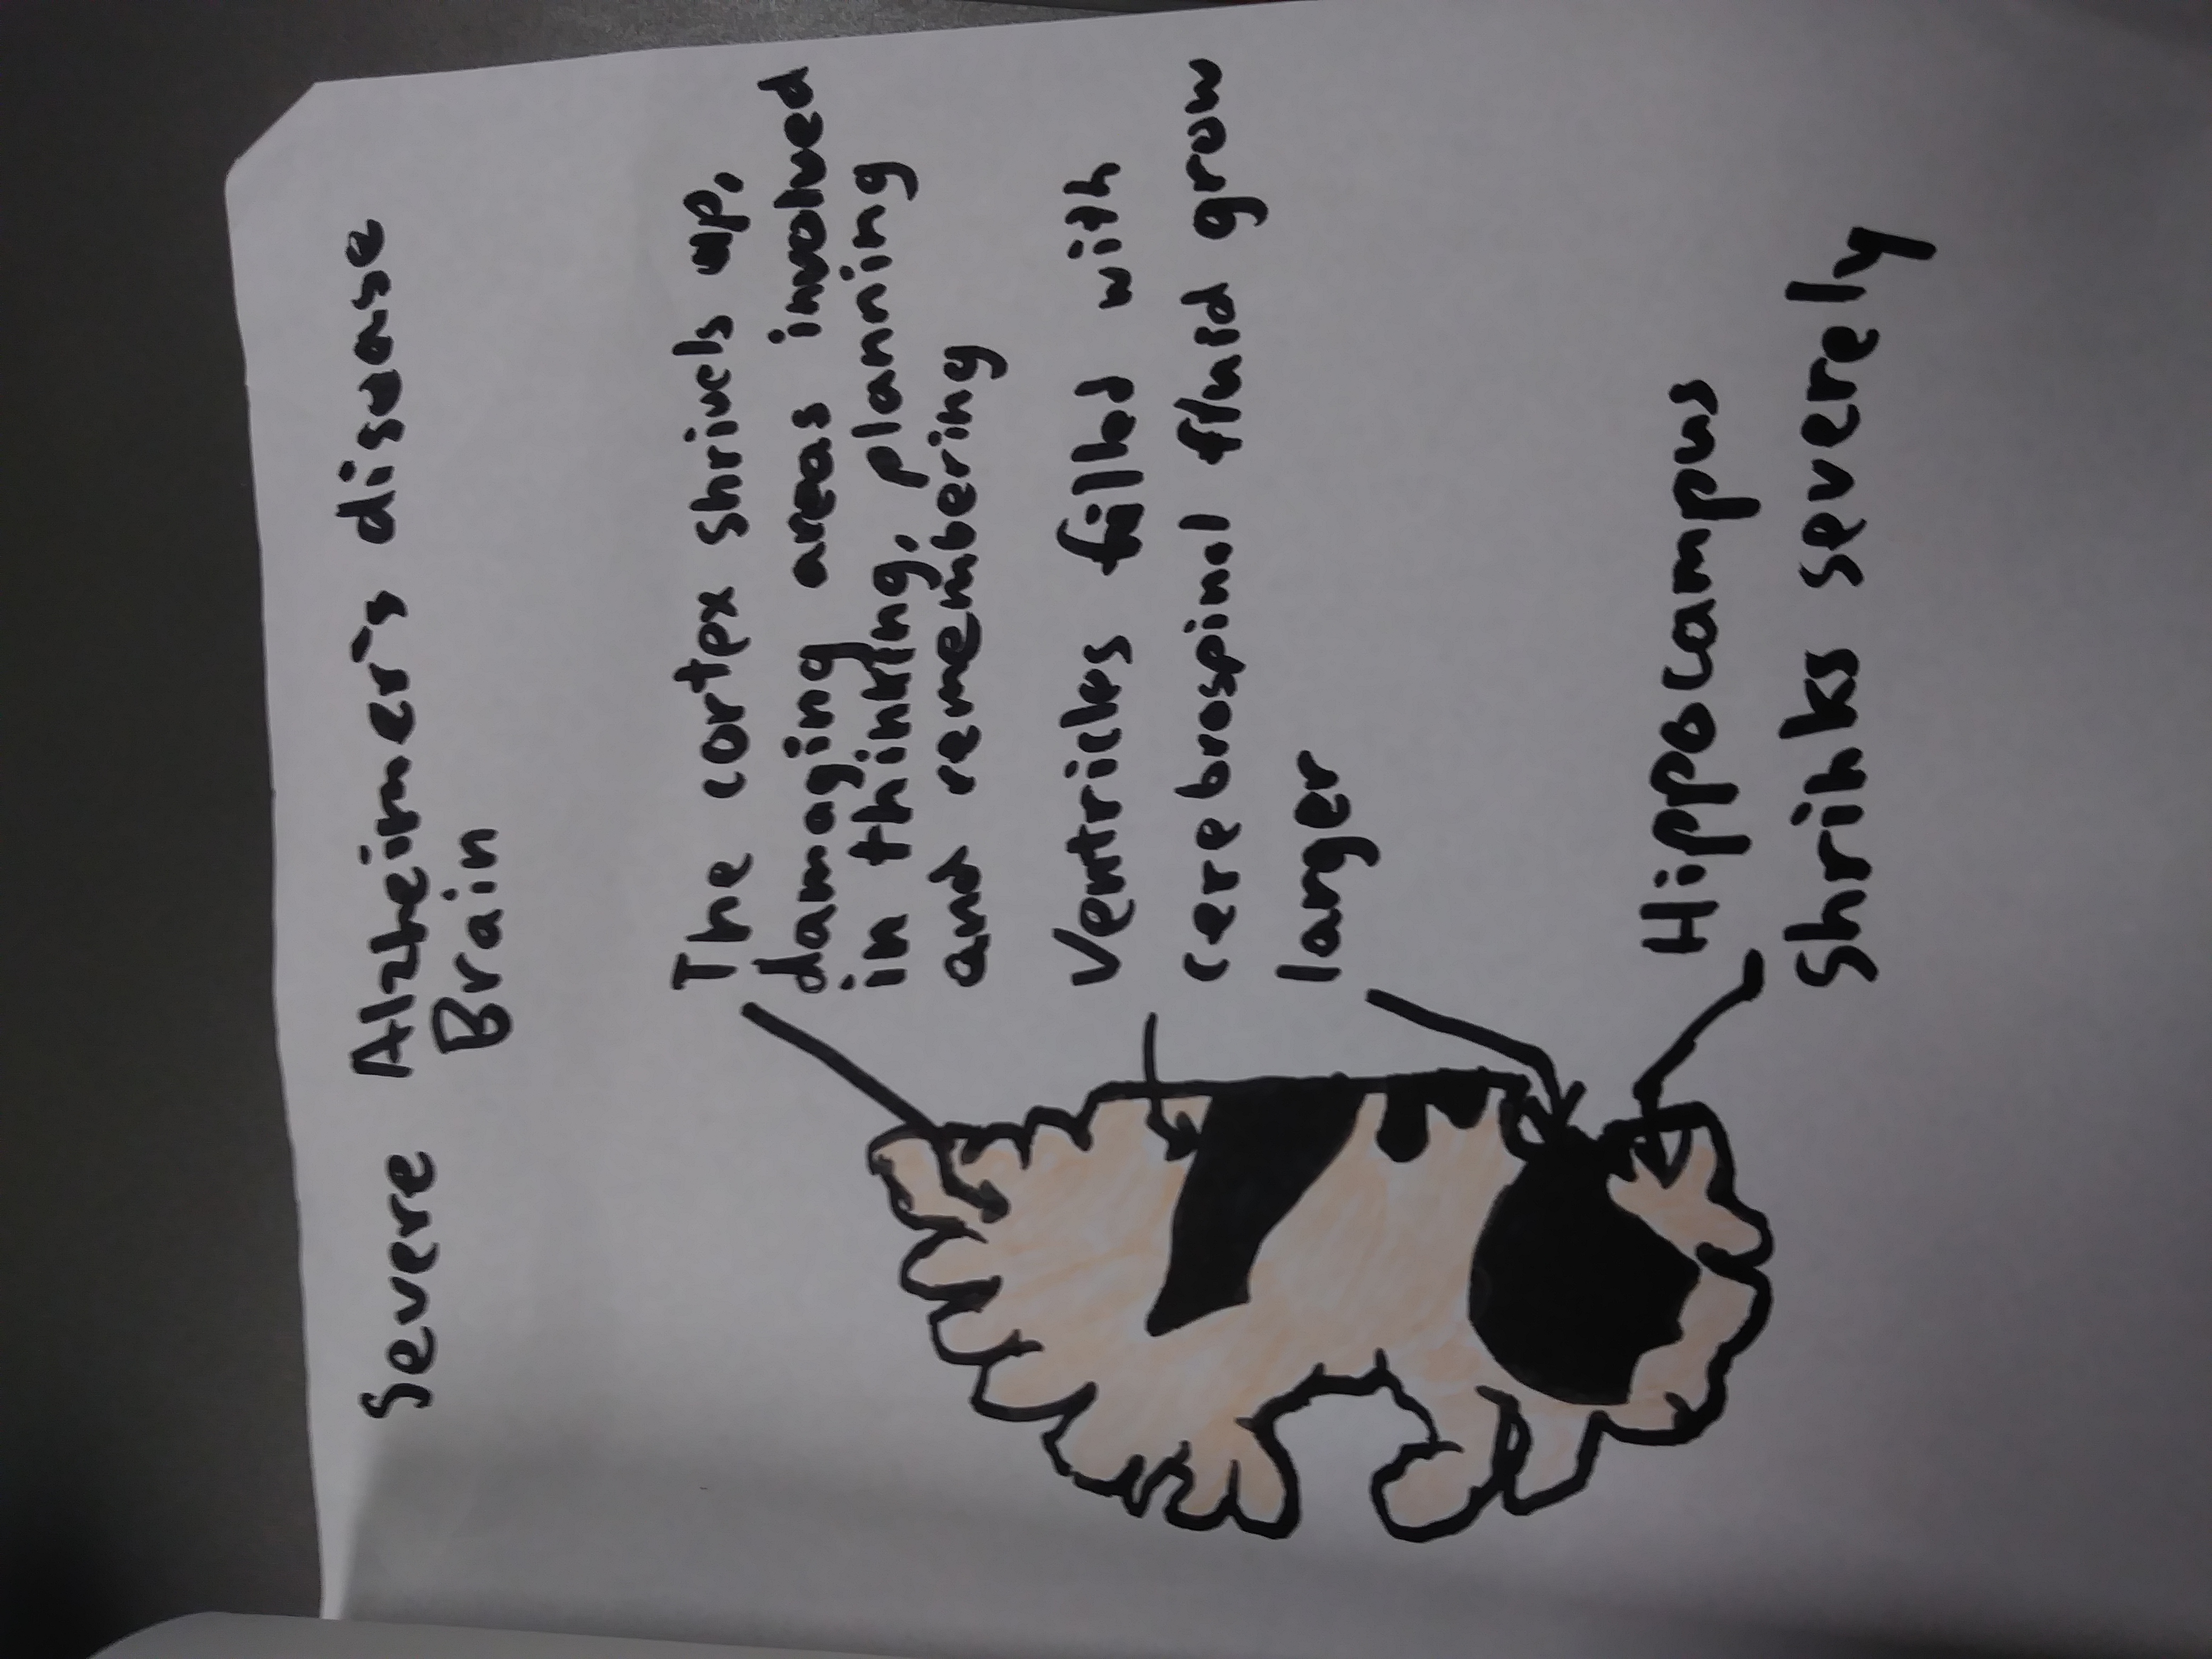 Severe Alzheimer's disease
Brain
The cortex shrivels up,
damaging areas involved
in thinking, planning
and remembering
Ventricles filled with
cerebrospinal fluid grow
larger
Hippocampus
Shrinks severely